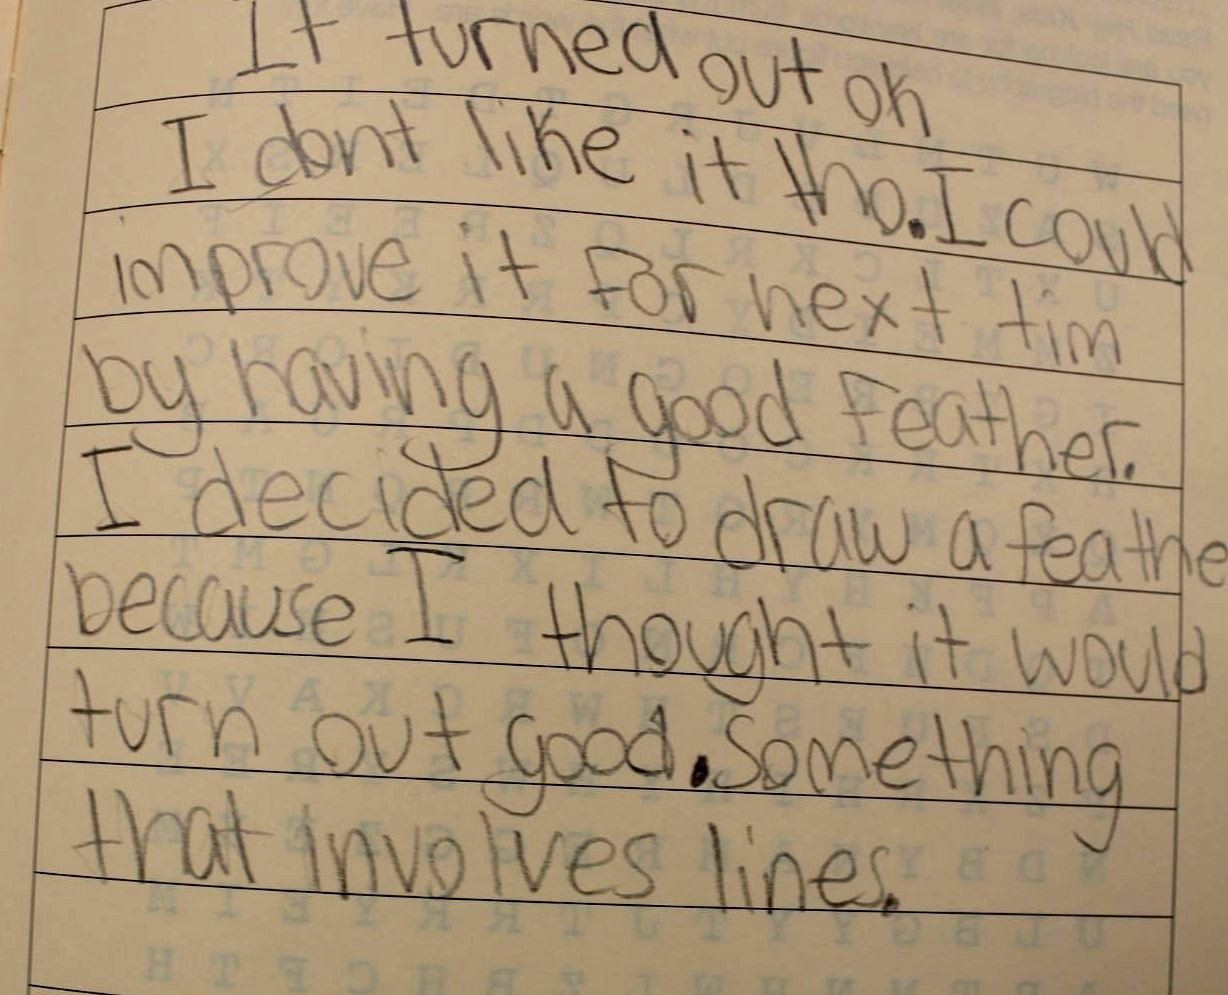 It turned out ok
I dont like it tho. I could
improve it for next tim
by having a good feather.
I decided to draw a feathe
because I thought it would
turn out good. Something
that involves lines.